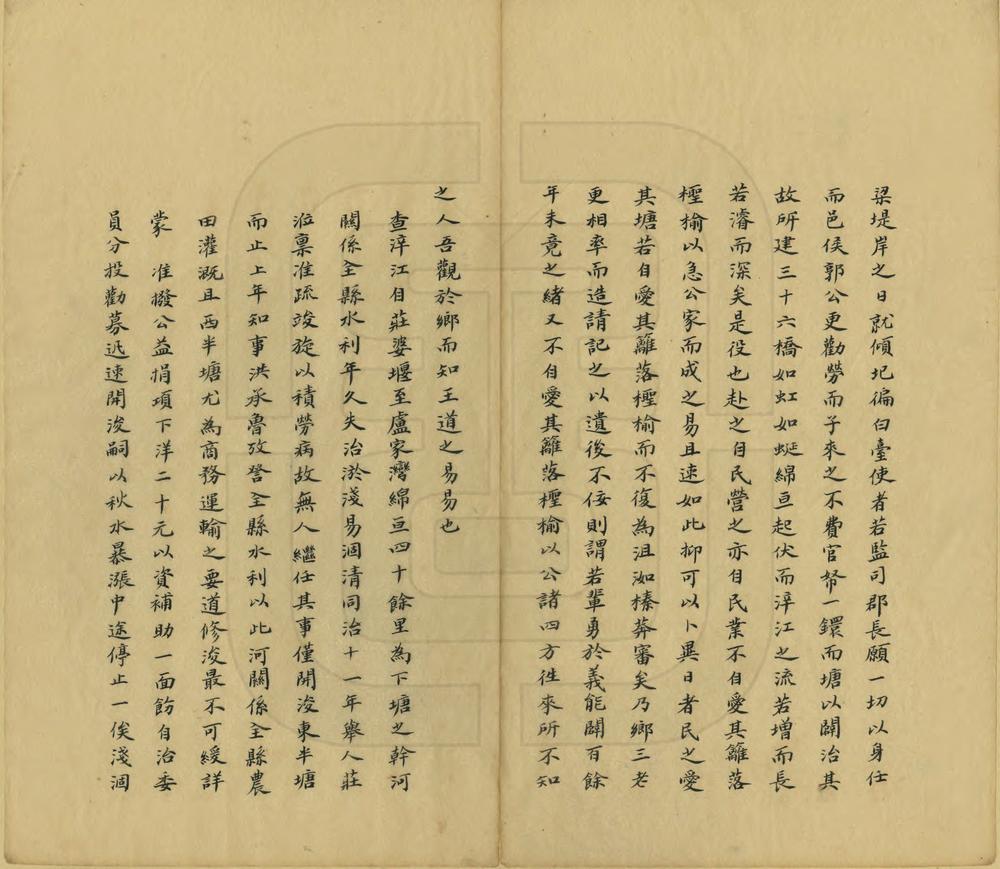 梁堤岸之日就傾圮徧白臺使者若監司郡長願一切以身任
而邑侯郭公更勸勞而子來之不費官帑一鐶而塘以闢治其
故所建三十六橋如虹如蜒綿亘起伏而淳江之流若增而長
若濬而深矣是役也赴之自民營之亦自民業不自愛其籬落
檉榆以急公家而成之易且速如此抑可以卜異日者民之愛
其塘若自愛其籬落檉榆而不復為沮洳榛莽審矣乃鄉三老
更相率而造請記之以遺後不佞則謂若輩勇於義能闢百餘
年未竟之緒又不自愛其籬落檉榆以公諸四方徃來所不知
之人吾觀於鄉而知王道之易易也
查淳江自莊婆堰至盧家灣綿亘四十餘里為下塘之幹河
關係全縣水利年久失治淤淺易涸清同治十一年舉人莊
涖稟准疏竣旋以積勞病故無人繼任其事僅開浚東半塘
而止上年知事洪承魯攷詧全縣水利以此河關係全縣農
田灌溉且西半塘尤為商務運輸之要道修浚最不可緩詳
蒙　准撥公益捐項下洋二十元以資補助一面飭自治委
員分投勸募迅速開浚嗣以秋水暴漲中途停止一俟淺涸